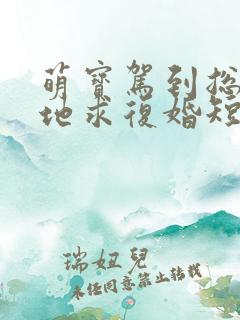 萌寶駕到總
地求復婚短
瑞妞兒
未經同意禁止轉載